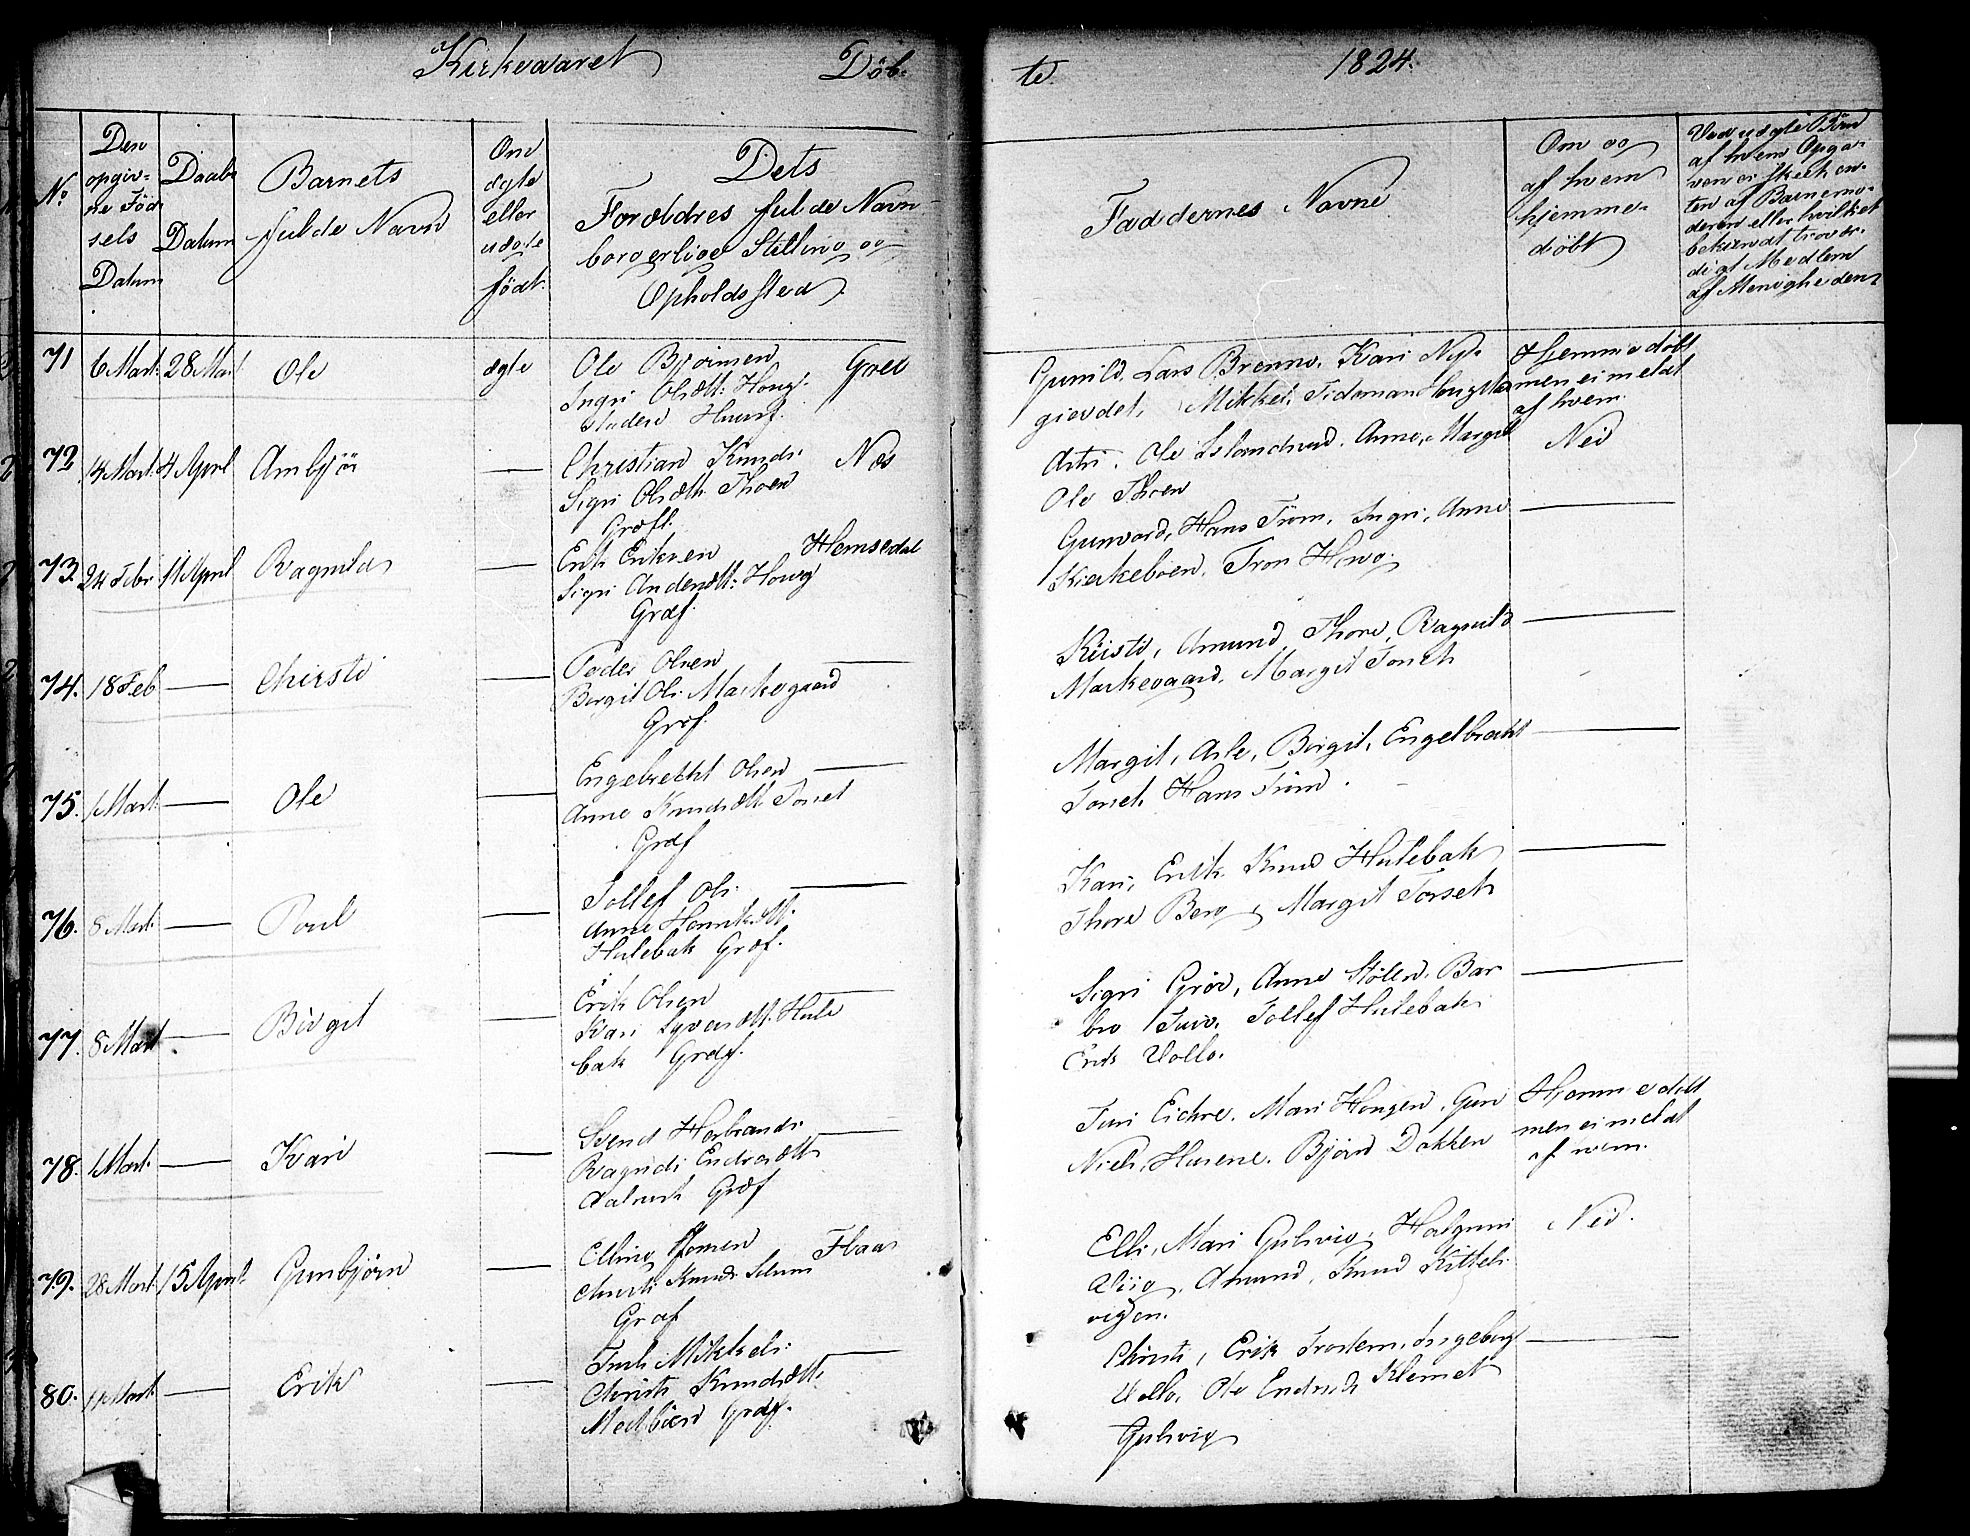 Kirkeaaret Döb-
te 1824.
No
Den opgiv-
ne Föd-
sels
Datum
Daabs
Datum
Barnets
fulde Navn
Om
ægte
eller
uægte
födt.
Dets
Forældres fulde Navn
borgerlige Stilling og
Opholdssted.
Faddernes Navne
Om og
af hvem
hjemme-
döbt
Ved uægte Börn
af hvem Opga-
ven er skeet en-
ten af Barnemo-
deren eller hvilket
bekiendt trovær-
digt Medlem
af Menigheden
71 6 Mart. 28 Mart Ole ægte Ole Björnsen Goel
Ingri Olsdtt: Houg-
staden Huusf.
Gunild, Lars Brenno, Kari Nyt-
gierdet, Mikkel, Tideman Hougsta
Hjemmedöbt
men ei meldt
af hvem.
72 14 Mart. 4 April Ambjör — Christian Knuds. Næs
Sigri Olsdtt. Thoen
Græf.
Ole Islandrud. Anne, Margit
Ole Thoen
Nei
73. 24 Febr 11 April Ragnild — Erik Eriksen Hemsedal
Sigri Andersdtt: Houg
Græf.
Gunvord, Hans Tüm, Ingri, Anne
Kirkeboen, Tron Houg.
—
74. 18 Feb — Christi — Peder Olsen —
Birgit Ols. Markegaard
Græf.
Kirsti, Amund, Thore, Ragnild
Markegaard, Margit Torset
—
75. 1 Mart — Ole — Engebrecht Olsen —
Anne Knudsdtt. Torset
Græf
Margit, Asle, Birgit, Engelbrecht
Torset, Hans Tüm.
—
76. 8 Mart. — Poul — Tollef Ols. —
Anne Henriksdtt.
Hulebak Græf.
Kari, Erik, Knud Hulebak
Thore Berg, Margit Torset
—
77. 8 Mart — Birgit — Erik Olsen —
Kari Syversdtt. Hule
bak Græf.
Sigri Gröv, Anne Stölen, Bar
bro Tuv, Tollef Hulebak
Erik Ulolo.
—
78. 1 Mart. — Kari — Svend Herbrands. —
Ragndi Endresdtt
Græf
Turi Eickre, Mari Hougen, Guri
Niels, Husene, Björn Dokken
Hjemmedöbt
men ei meldt
af hvem.
79. 28 Mart 15 April Gunbjörn — Elling Flaa
Christi Knuds.
Græf
Elli, Mari Gulsvig, Halgrim
Viig, Amund, Knud Kittels-
vigen.
Nei.
80. 11 Mart — Erik — Mikkels. —
Christi Knudsdtt.
Græf.
Christi, Erik Trostem, Ingeborg
Ole Endres Klemet
Gulsvig
—